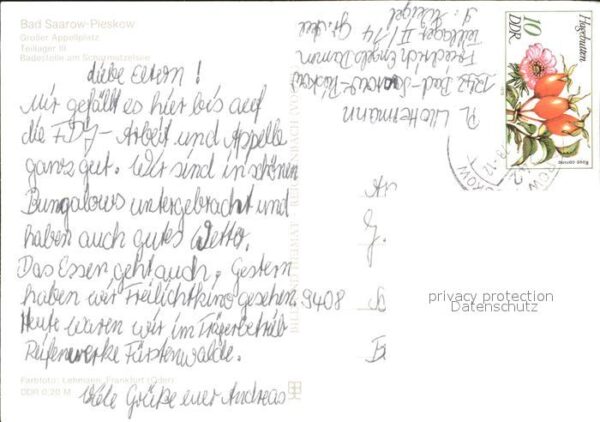 Bad Saarow-Pieskow
Großer Appellplatz
Teillager III
Badestelle am Scharmützelsee
Liebe Eltern!
Mir gefällt es hier bis auf
die FDJ-Arbeit und Appelle
ganz gut. Wir sind in schönen
Bungalows untergebracht und
haben auch gutes Wetter.
Das Essen geht auch, Gestern
haben wir Freilichtkino gesehen.
Heute waren wir im Trägerbetrieb
Reifenwerke Fürstenwalde.
Viele Grüße euer Andreas
Farbfoto: Lehmann, Frankfurt (Oder)
DDR 0,20 M
BILD UND HEIMAT
1242 Bad-Saarow-Pieskow
Friedrich Engels Damm
Teillager II/74
Hagebutten
10
DDR
9408
privacy protection
Datenschutz